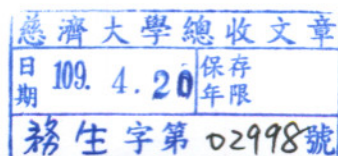 慈濟大學總收文章
日期 109. 4. 20 保存年限
務生字第02998號